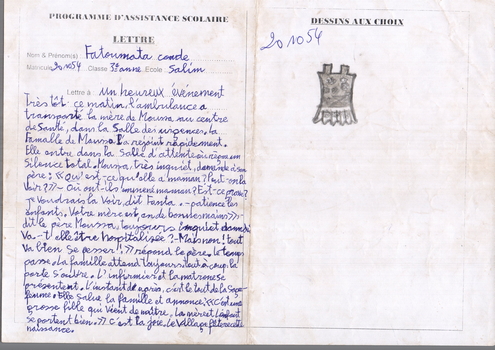 PROGRAMME D'ASSISTANCE SCOLAIRE
LETTRE
Nom & Prénom(s) Fatoumata conde
Matricule 201054 Classe 3e anne Ecole Salim
Lettre à Un heureux événement
Très tôt ce matin, l'ambulance a
transporté la mère de Moussa au centre
de Santé, dans la Salle des urgences, la
Famille de Moussa l'a rejoint rapidement.
Elle entre dans la Salle d'attente où règne un
Silence total. Moussa, très inquiet, demande à son
père : «Qu'est-ce qu'elle a maman? Peut-on la
voir?» - Où ont-ils emmené maman? Est-ce grave?
Je voudrais la voir, dit Fanta. - patience les
enfants. Votre mère est en de bonnes mains»
dit le père Moussa, toujours inquiet
va-t-elle être hospitalisée? - Mais non! tout
va bien se passer!» répond le père. Le temps
passe. La famille attend toujours tout à coup la
porte s'ouvre. L'infirmier et la matrone se
présentent. L'instant d'après, c'est le tout de la Sage
femme. Elle Salue la famille et annonce: «C'est une
grosse fille qui vient de naître. La mère et l'enfant
se portent bien.» C'est la joie. Le Village fête cette
naissance.
DESSINS AUX CHOIX
201054